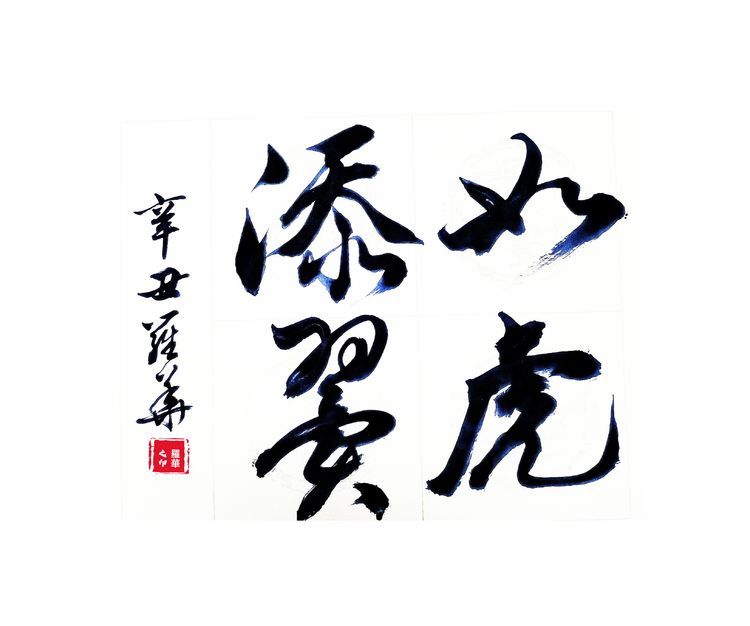 如虎
添翼
辛丑羅華
羅華之印